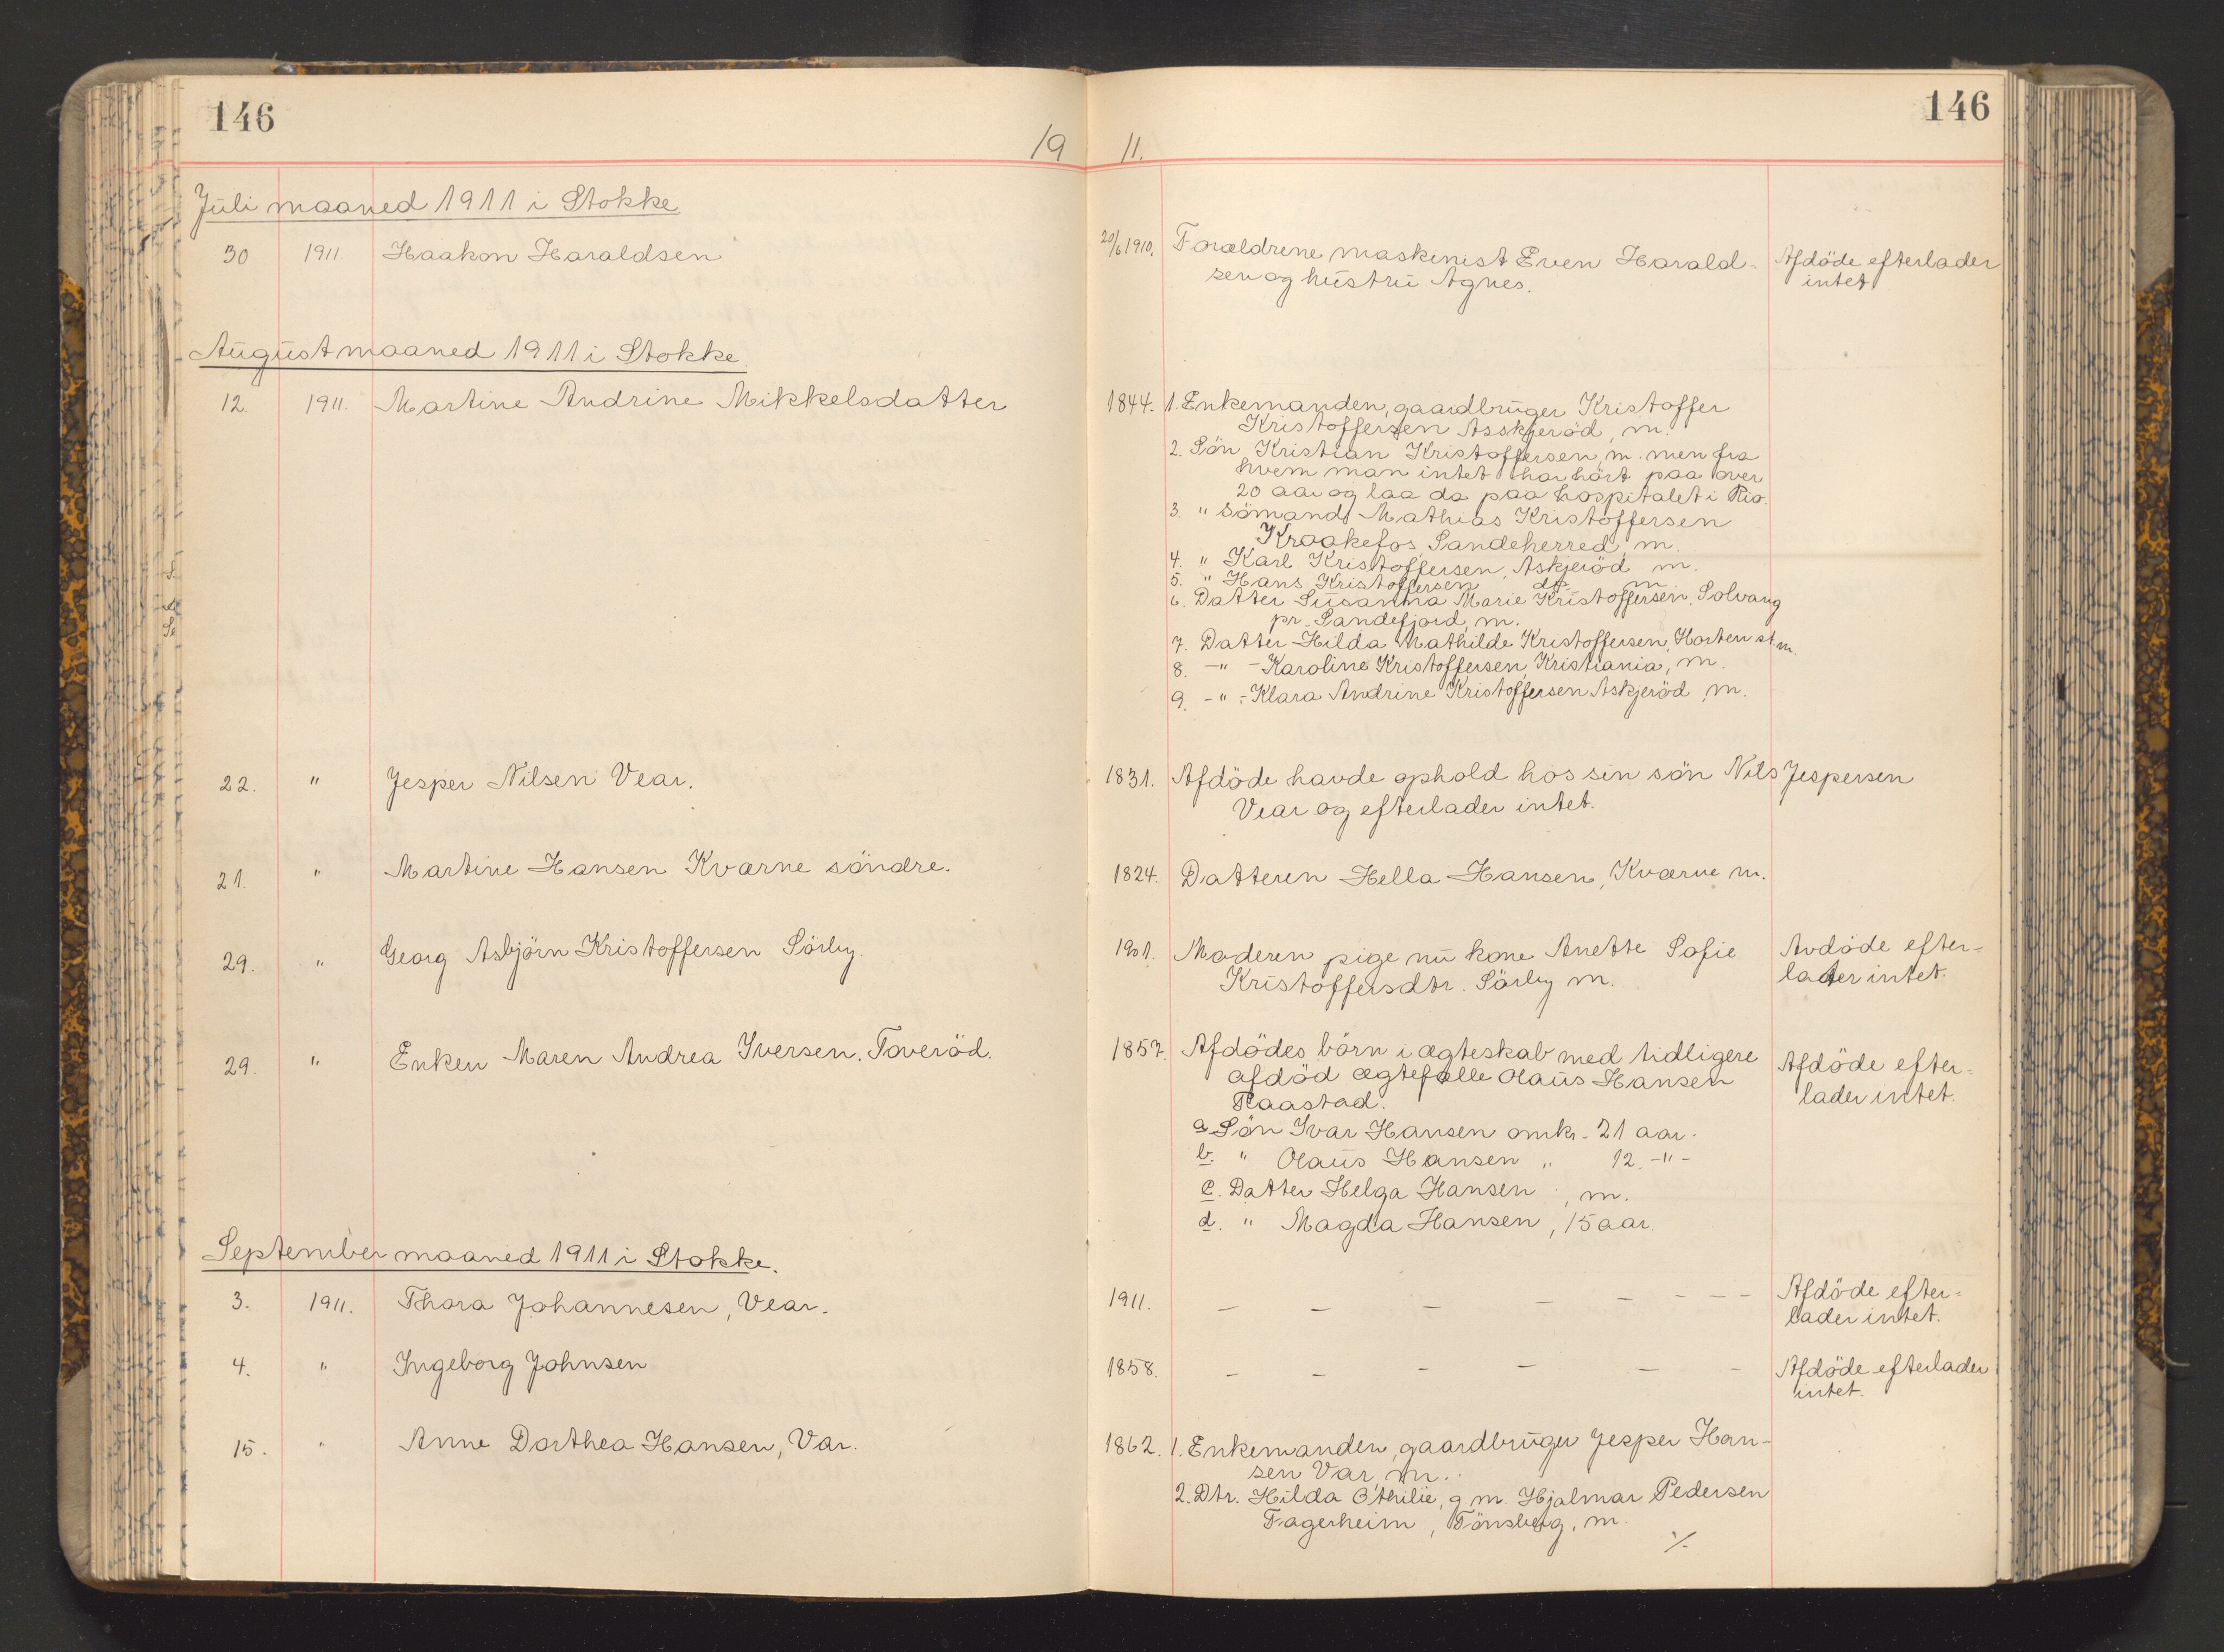 146
146
19 11.
Juli maaned 1911 i Stokke
30 1911. Haakon Haraldsen 20/6 1910. Forældrene maskinist Even Harald- Afdöde efterlader
sen og hustru Agnes. intet
August maaned 1911 i Stokke
12. 1911. Martine Andrine Mikkelsdatter 1844. 1. Enkemanden, gaardbruger Kristoffer
Kristoffersen Asskjeröd, m.
2. Sön Kristian Kristoffersen, m. men fra
hvem man intet har hört paa over
20 aar og laa da paa hospitalet i Rio.
3. " Sömand Mathias Kristoffersen
Kraakefos, Sandeherred, m.
4. " Karl Kristoffersen, Askjeröd m.
5. " Hans Kristoffersen do m
6. Datter Susanna Marie Kristoffersen, Solvang
pr. Sandefjord, m.
7. Datter Hilda Mathilde Kristoffersen, Horten st. m.
8. -"- Karoline Kristoffersen, Kristiania, m.
9. -"- Klara Andrine Kristoffersen Askjeröd, m.
22. " Jesper Nilsen Vear. 1831. Afdöde havde ophold hos sin sön Nils Jespersen
Vear og efterlader intet.
21. " Martine Hansen Kværne söndre. 1824. Datteren Hella Hansen, Kværne m.
29. " Georg Asbjörn Kristoffersen Sörby 1901. Moderen pige nu kone Anette Sofie Avdöde efter-
Kristoffersdtr. Sörby m. lader intet.
29. " Enken Maren Andrea Iversen. Taveröd. 1857. Afdödes börn i ægteskab med tidligere Afdöde efter-
afdöd ægtefælle Olaus Hansen lader intet.
Raastad.
a Sön Ivar Hansen omkr. 21 aar.
b. " Olaus Hansen " 12 -"-
c. Datter Helga Hansen, m.
d. " Magda Hansen, 15 aar.
September maaned 1911 i Stokke.
3. 1911. Thora Johannesen, Vear. 1911. – – – – – – – – Afdöde efter-
lader intet.
4. " Ingeborg Johnsen 1858. – – – – – – Afdöde efterlader
intet.
15. " Anne Dorthea Hansen, Var. 1862. 1. Enkemanden, gaardbruger Jesper Han-
sen Var, m..
2. Dtr. Hilda Othilie, g. m. Hjalmar Pedersen
Fagerheim, Tönsberg, m.
./.